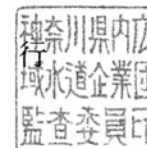 神奈川県内広
域水道企業団
監査委員印
行